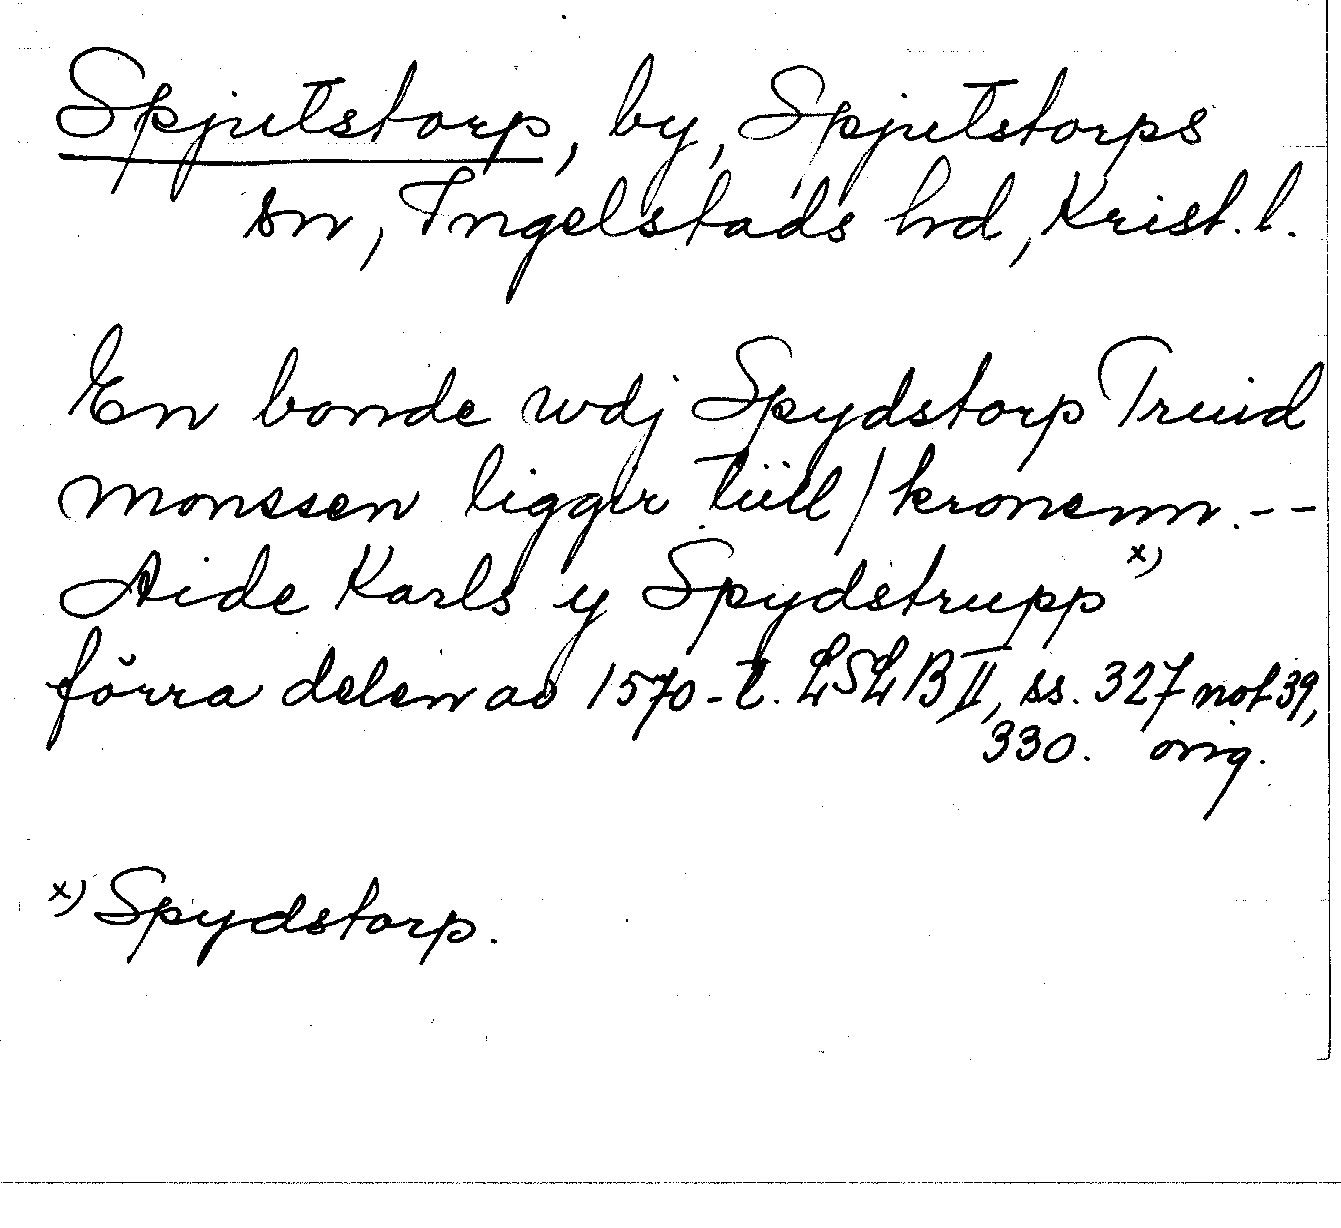 Spjutstorp, by, Spjutstorps
sn, Ingelstads hd, Krist. l.
En bonde wdj Spydstorp Truid
monssen ligger tiill / kronenn. --
Aide Karls y Spydstrupp x)
förra delen av 1570-t. LSLB II, ss. 327 not 39,
330. orig.
x) Spydstorp.